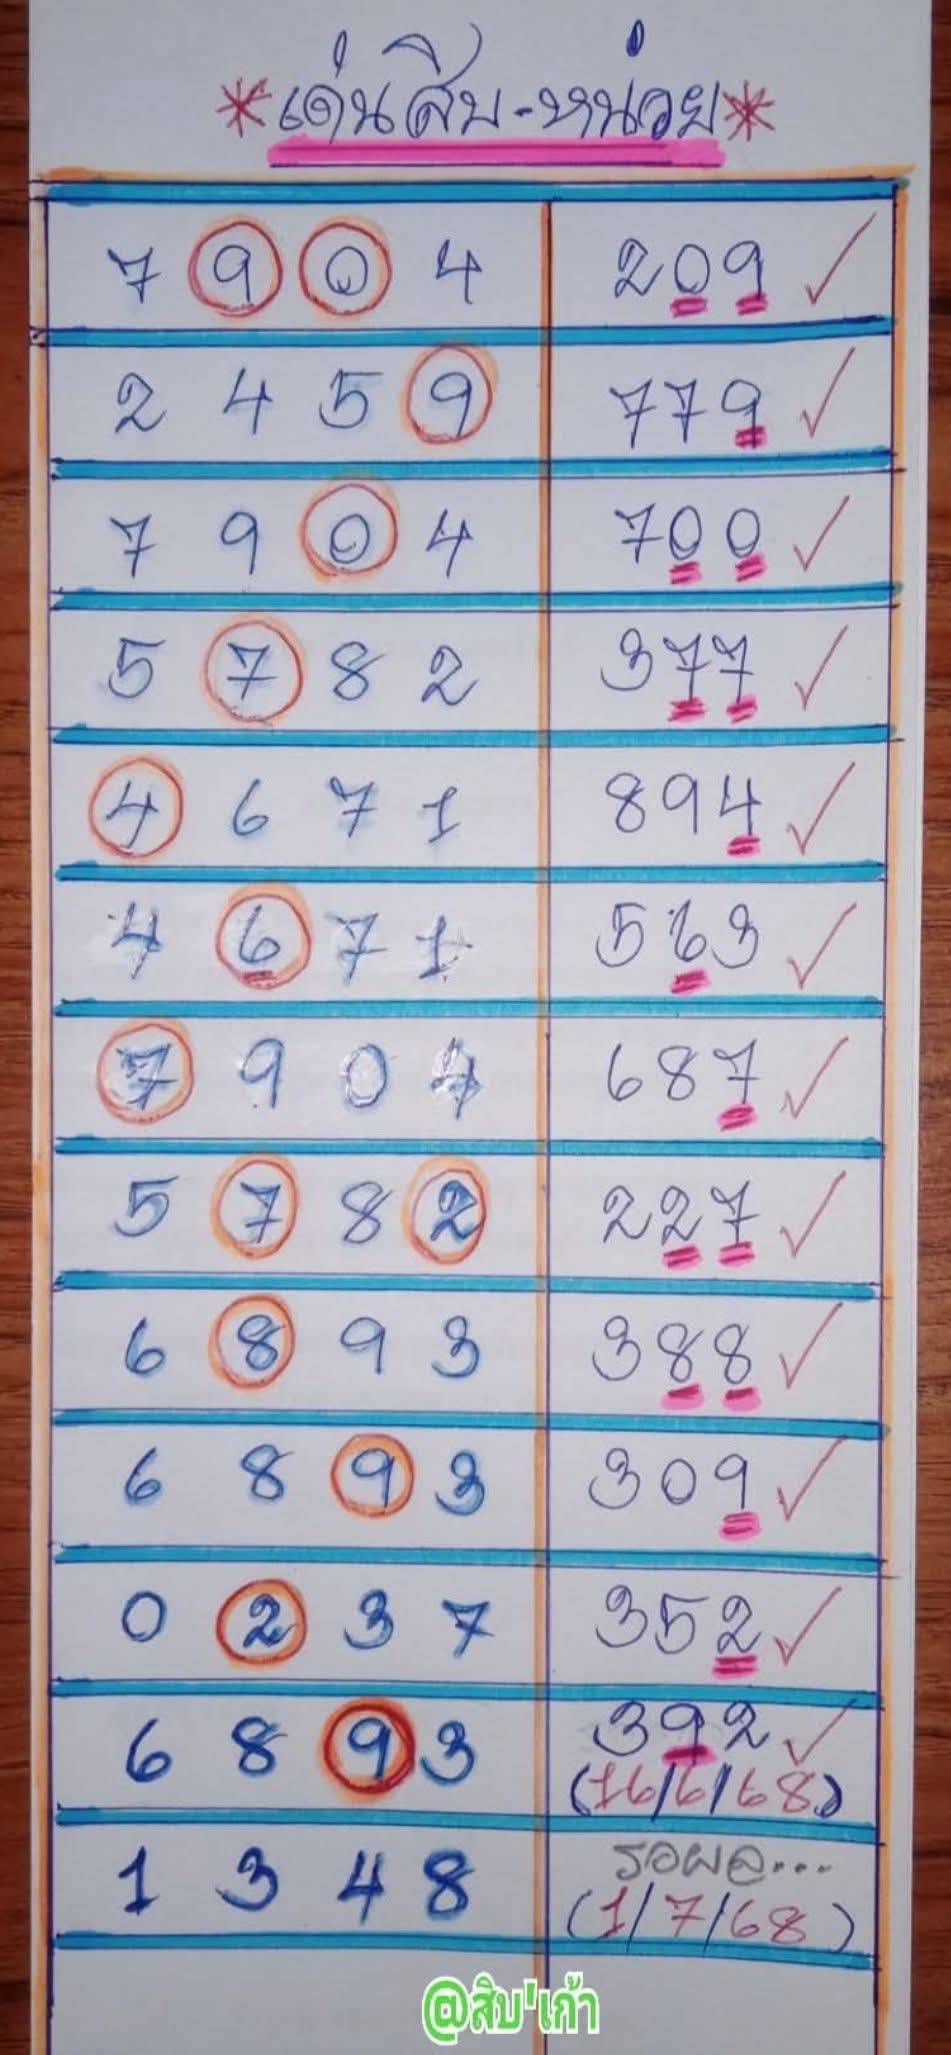 *เด่นสิบ-หน่วย*
7 9 0 4 209 ✓
2 4 5 9 779 ✓
7 9 0 4 700 ✓
5 7 8 2 377 ✓
4 6 7 1 894 ✓
4 6 7 1 563 ✓
7 9 0 4 687 ✓
5 7 8 2 227 ✓
6 8 9 3 388 ✓
6 8 9 3 309 ✓
0 2 3 7 352 ✓
6 8 9 3 392 ✓
(16/6/68)
1 3 4 8 รอผล...
(1/7/68)
@สิบ'เก้า